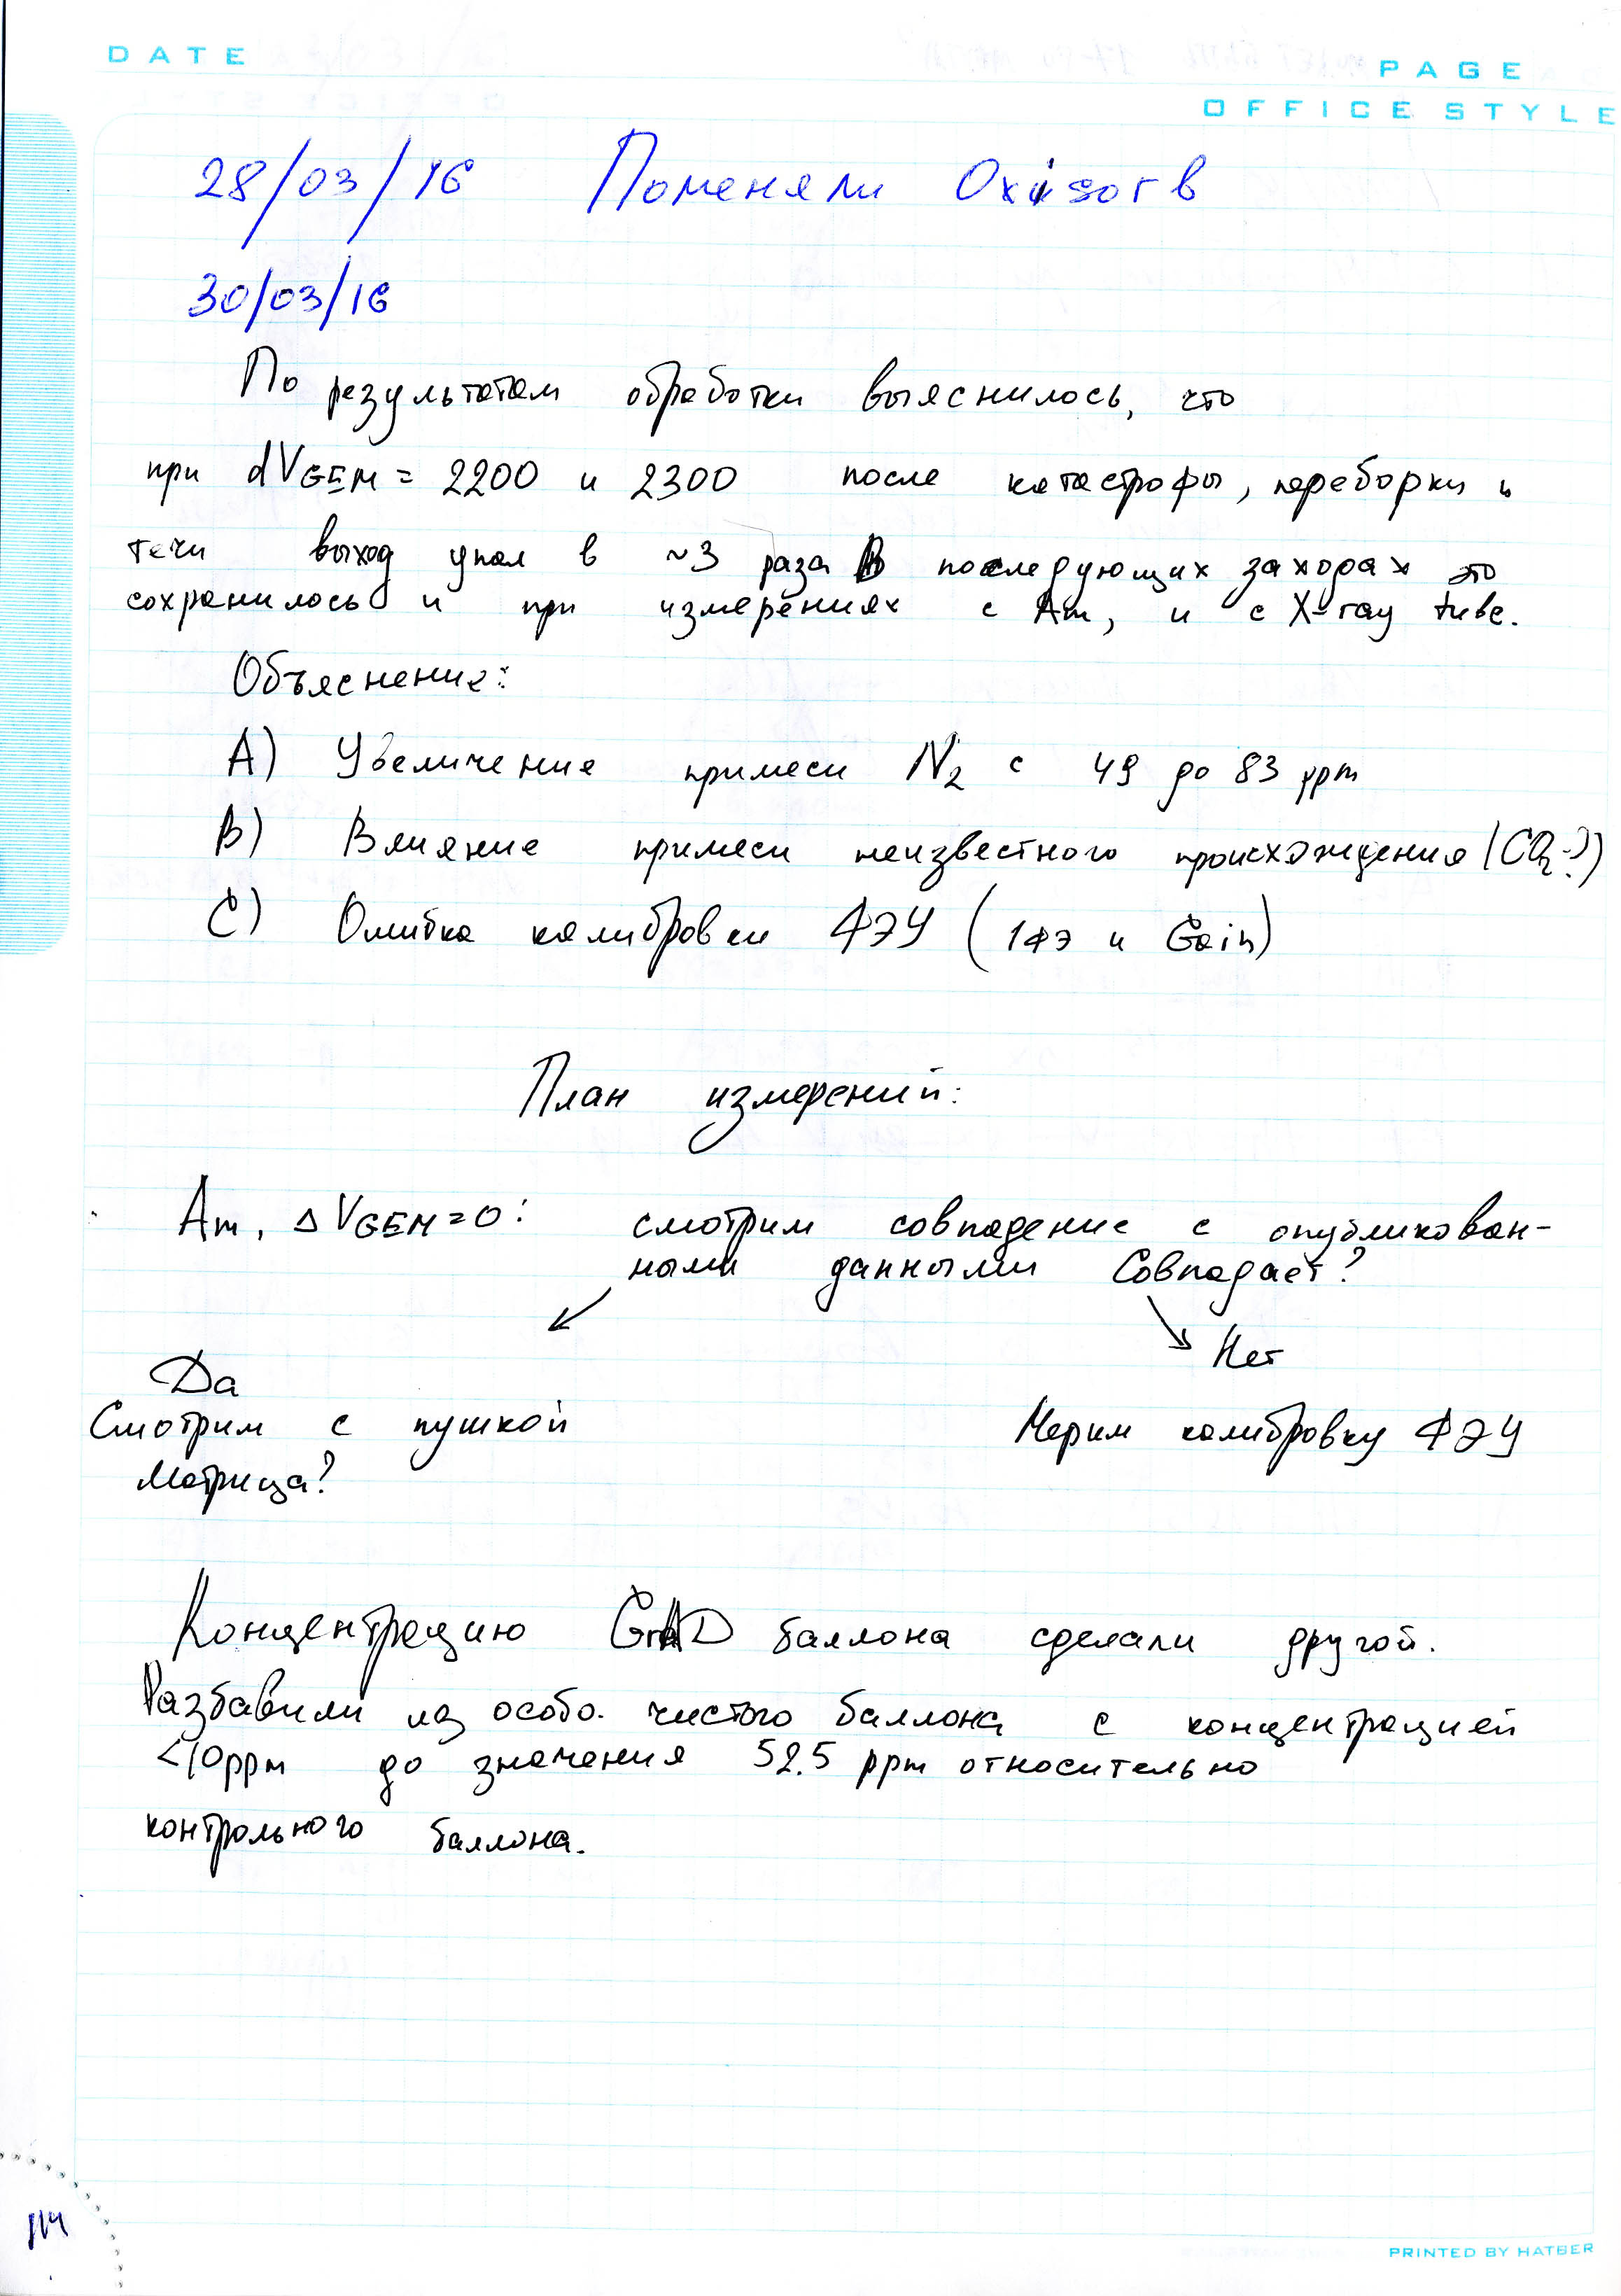 DATE
PAGE
OFFICE STYLE
28/03/16 Поменяли Oxisorb
30/03/16
По результатам обработки выяснилось, что
при dVGEM = 2200 и 2300 после катастрофы, переборки и
течи выход упал в ~3 раза В последующих заходах это
сохранилось и при измерениях с Am, и с X-ray tube.
Объяснение:
A) Увеличение примеси N₂ с 49 до 83 ppm
B) Влияние примеси неизвестного происхождения (CO₂-?)
C) Ошибка калибровки ФЭУ (1ФЭ и Gain)
План измерений:
Am, ΔVGEM=0: смотрим совпадение с опубликован-
ными данными Совпадает?
Да
Нет
Смотрим с пушкой
Мерим калибровку ФЭУ
Матрица?
Концентрацию баллона сделали другой.
Разбавили из особо. чистого баллона с концентрацией
<10ppm до значения 52.5 ppm относительно
контрольного баллона.
114
PRINTED BY HATBER